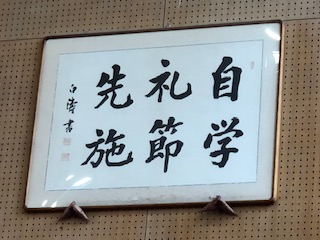 自学
礼節
先施
白濤書